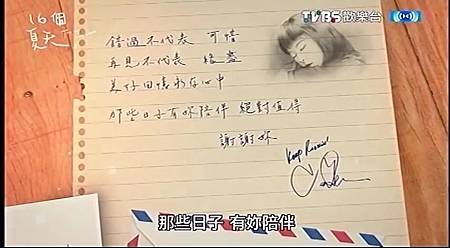 16個
夏天
TVBS歡樂台
錯過不代表 可惜
再見不代表 緣盡
美好回憶永在心中
那些日子有妳陪伴 絕對值得
謝謝妳
Keep Runnin'
那些日子 有妳陪伴